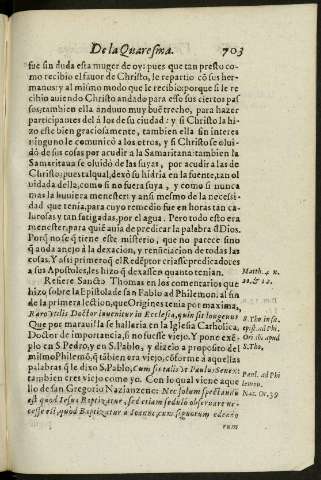 De la Quaresma. 703
fue sin duda esta muger de oy: pues que tan presto co-
mo recibio el fauor de Christo, le repartio cō sus her-
manus: y al mismo modo que le recibio: porque si le re-
cibio auiendo Christo andado para esso sus ciertos pas
sos, tambien ella anduuo muy buē trecho, para hazer
participantes del à los de su ciudad: y si Christo la hi-
zo este bien graciosamente, tambien ella sin interes
ninguno le comunicò a los otros, y si Christo se olui-
dò de sus cosas por acudir a la Samaritana: tambien la
Samaritana se oluidò de las suyas, por acudir a las de
Christo: pues tal qual, dexò su hidria en la fuente, tan ol
uidada della, como si no fuera suya, y como si nunca
mas la huuiera menester: y ansi mesmo de la necessi-
dad que tenia, para cuyo remedio fue en horas tan ca-
lurosas y tan fatigadas, por el agua. Pero todo esto era
menester, para quiē auia de predicar la palabra d̄ Dios.
Porq̄ no se q̄ tiene este misterio, que no parece sino
q̄ anda anejo à la dexacion, y renūciacion de todas las
cosas. Y assi primero q̄ el Redēptor criasse predicadores
a sus Apostoles, les hizo q̄ dexassen quanto tenian.
Matth. 4. n.
20. & 22.
Refiere Sancto Thomas en los comentarios que
hizo sobre la Epistola de san Pablo ad Philemon, al fin
de la primera lection, que Origenes tenia por maxima,
Raro talis Doctor inuenitur in Ecclesia, quin sit longeuus
S. Tho in se.
epist. ad Ph.
Ori. ibi. apud
S. Tho.
Que por marauilla se hallaria en la Iglesia Catholica,
Doctor de importancia, si no fuesse viejo. Y pone exē-
plo en S. Pedro, y en S. Pablo, y dizelo a proposito del
mismo Philemō, q̄ tābien era viejo, cōforme à aquellas
palabras que le dixo S. Pablo, Cum sis talis vt Paulus Senex:
Paul. ad Phi
lemon.
tambien eres viejo como yo. Con lo qual viene aque
llo de san Gregorio Nazianzeno: Nec solum spectandū
Naz. Or. 39
est quod Iesus Baptizatur, sed etiam sedulò obseruare ne-
cesse est, quod Baptizatur a Ioanne, cum signorum edendo
rum